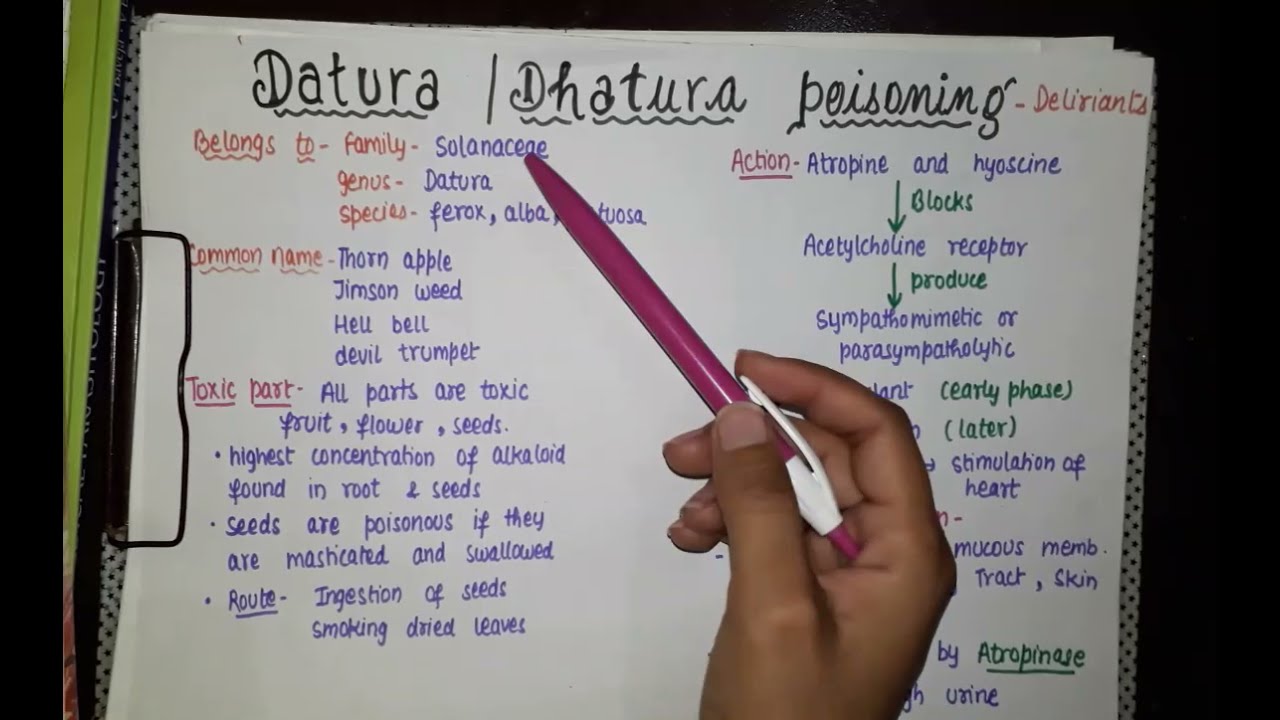 Datura / Dhatura poisoning - Deliriants
Belongs to - family - Solanaceae
genus - Datura
species - ferox, alba,
Common name - Thorn apple
Jimson weed
Hell bell
devil trumpet
Toxic part - All parts are toxic
fruit, flower, seeds.
• highest concentration of alkaloid
found in root & seeds
• seeds are poisonous if they
are masticated and swallowed
• Route - Ingestion of seeds
smoking dried leaves
Action - Atropine and hyoscine
Blocks
Acetylcholine receptor
produce
sympathomimetic or
parasympatholytic
(early phase)
(later)
→ stimulation of
heart
mucous memb.
Tract, skin
by Atropinase
urine